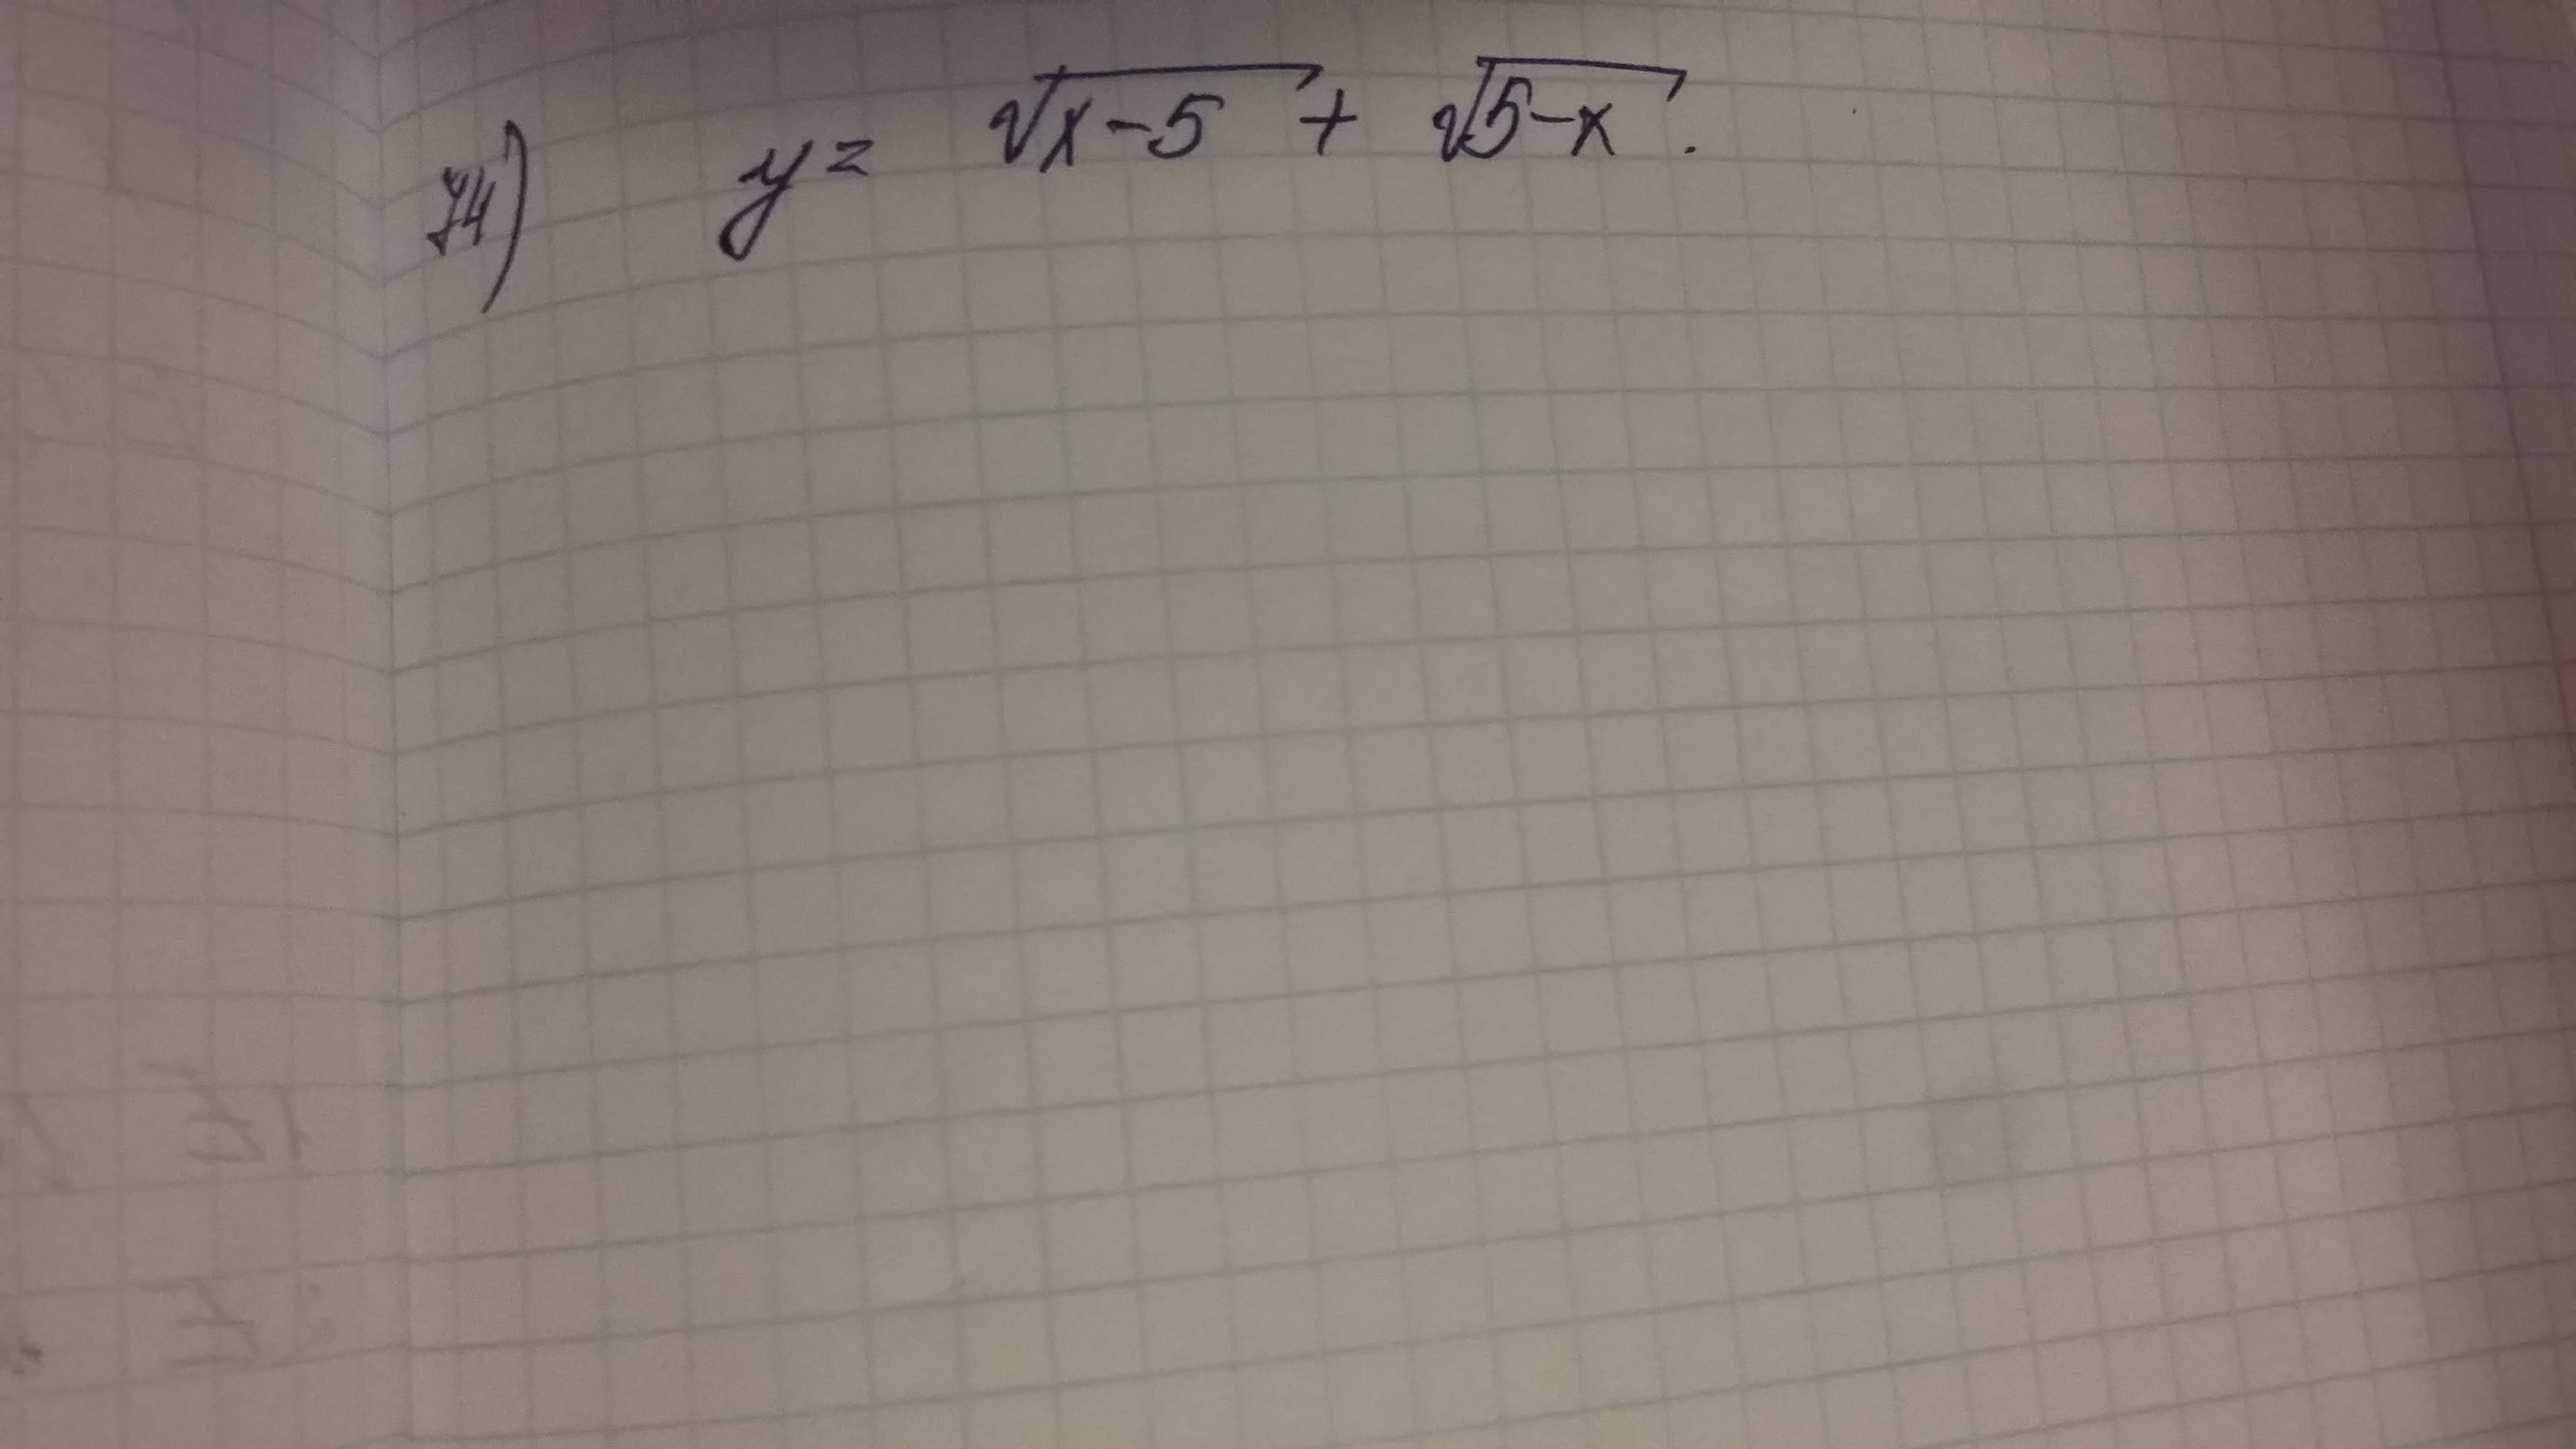 74) y = √(x-5) + √(5-x).